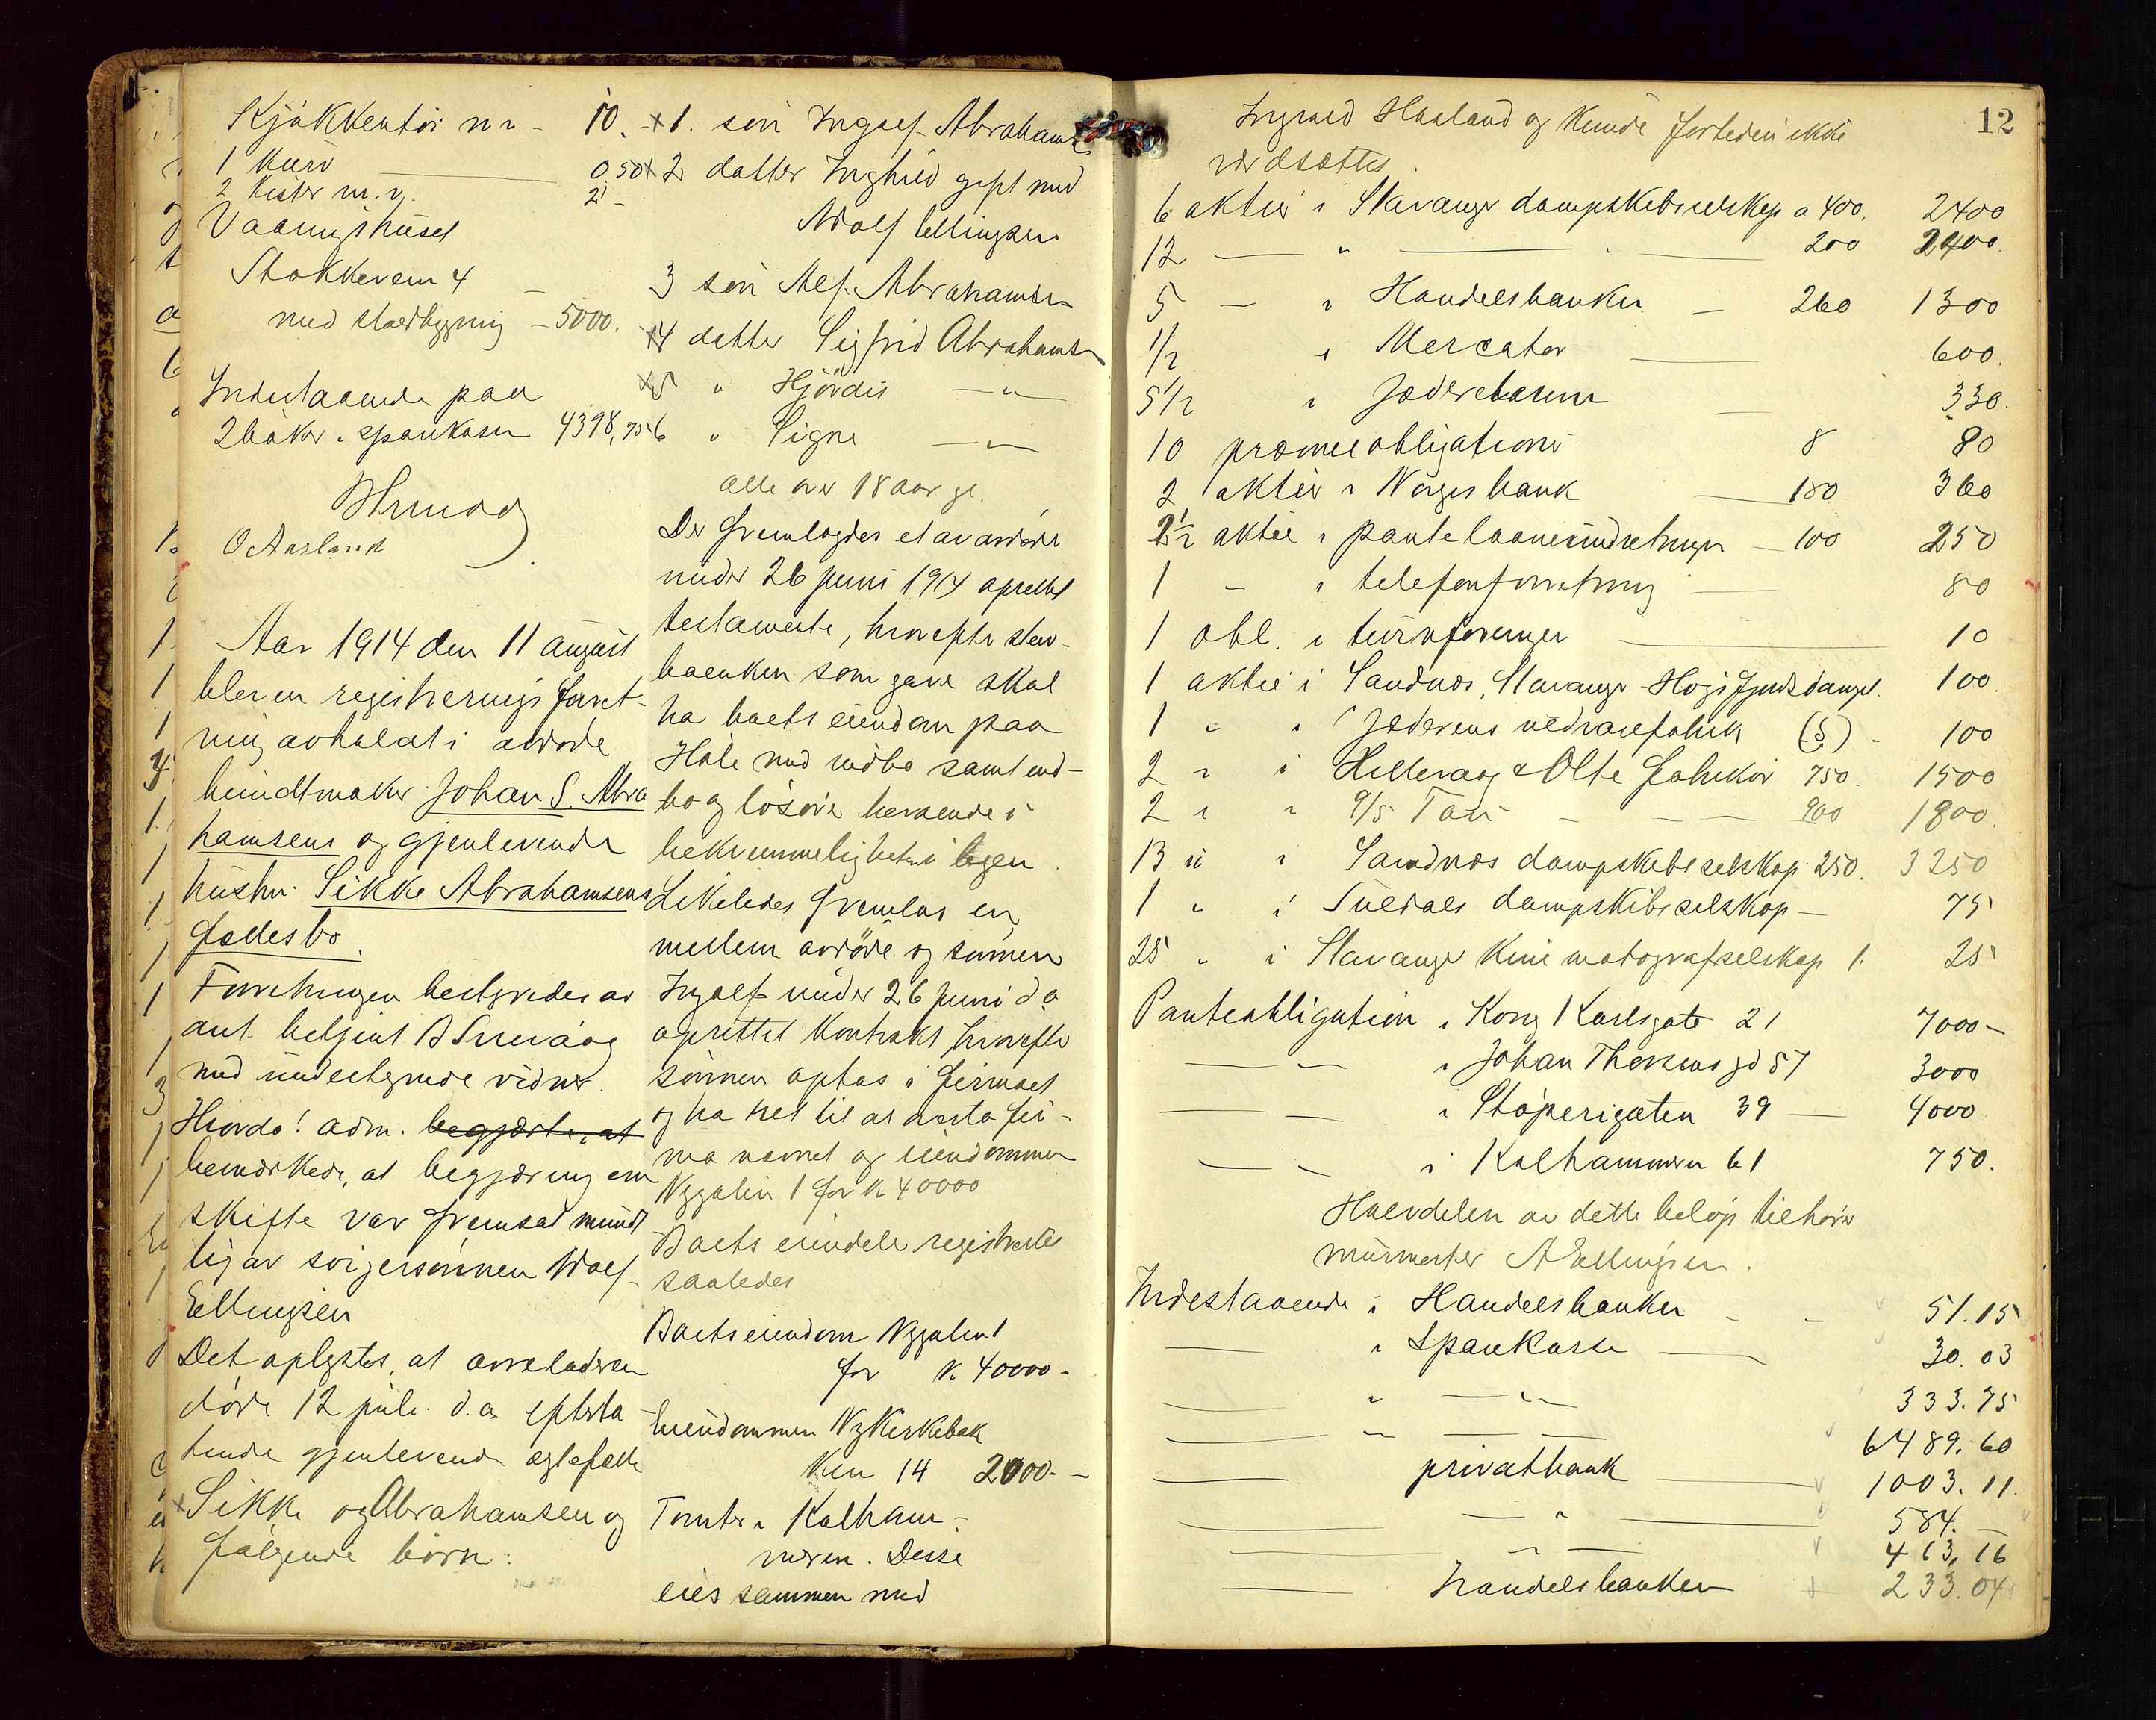 Kjøkkentøi m. v. - 10.-
1 kurv 0,50
2 kister m. v. 2 -
Vaaningshuset
Stokkeveien 4
med stadbygning - 5000.
Indestaaende paa
2 bøker i sparekassen 4398,75
O Aasland
Aar 1914 den 11 august
blev en registreringsforret-
ning avholdt i avdøde
bundtmaker Johan S. Abra
hamsens og gjenlevende
hustru Sikke Abrahamsens
fællesbo.
Forretningen bestyredes av
aut. betjent
med undertegnede vidner.
Hvorda! adm. begjærte, at
bemerkede, at begjæring om
skifte var fremsat mundt
lig av svigersønnen Adolf
Ellingsen
Det oplystes, at avdøde
døde 12 juli d.a. efterla
tende gjenlevende egtefælle
x Sikke Abrahamsen og
følgende børn:
x 1. søn Ingolf Abrahams
x 2 datter Inghild gift med
Adolf Ellingsen
3 søn Alf Abrahamsen
x 4 datter Sigfrid Abrahamsen
x 5 " Hjørdis — " —
6 " Signe — " —
alle over 18 aar gl.
Der fremlagdes et av avdøde
under 26 juni 1914 oprettet
testamente, hvorefter sten-
bænken som gave skal
ha boets eiendom paa
Hole med indbo samt ind-
bo og løsøre beroende i
bekvemmelighet i byen.
Likeledes fremlas en
mellem avdøde og sønnen
Ingolf under 26 juni d a
oprettet kontrakt hvorefter
sønnen optas i firmaet
og ha ret til at overta fir-
ma navnet og eiendommen
Nygaten 1 for kr 40000
Boets eiendele registrertes
saaledes
Boets eiendom Nygaten 1
for kr. 40000-
Eiendommen Ny Kirkebak
ken 14 2000.-
Tomter i Kalham-
meren. Disse
eies sammen med
12
Ingvald Haaland og kunde fortiden ikke
værdsættes.
6 aktier i Stavanger dampskibsselskap a 400. 2400
12 — " — 200 2400.
5 — " i Handelsbanken — 260 1300
1/2 i Mercator 600.
5 1/2 i Jæderbanen 330.
10 præmieobligationer 8 80
2 aktier i Norges bank — 180 360
2 1/2 aktie i pantelaaneindretningen — 100 250
1 — i telefonforretning 80
1 obl. i turnforeningen 10
1 aktie i Sandnæs, Stavanger Høgsfjords dampsk. 100
1 " i Jæderens uldvarefabrik (S) - 100
2 " i Hilleraag & Olte fabrikker 750. 1500
2 " " A/S Tau — 900 1800.
13 " i Sandnæs dampskibsselskap 250. 3250
1 " i Suldals dampskibsselskap — 75
25 " i Stavanger Kinematografselskap 1. 25
Panteobligation i Kong Karlsgate 21 7000-
— — i Johan Thorsens gd 57 3000
— — i Støperigaten 39 — 4000
— — i Kalhammeren 61 750.
Halvdelen av dette beløp tilhører
murmester A Ellingsen.
Indestaaende i Handelsbanken - - 51.15
— i Sparekassen — 30.03
— " — " — 333.75
— " — — 6489.60
— privatbank — 1003.11.
— — " — 584.—
— — " — 463,16
— Handelsbanken 233.04